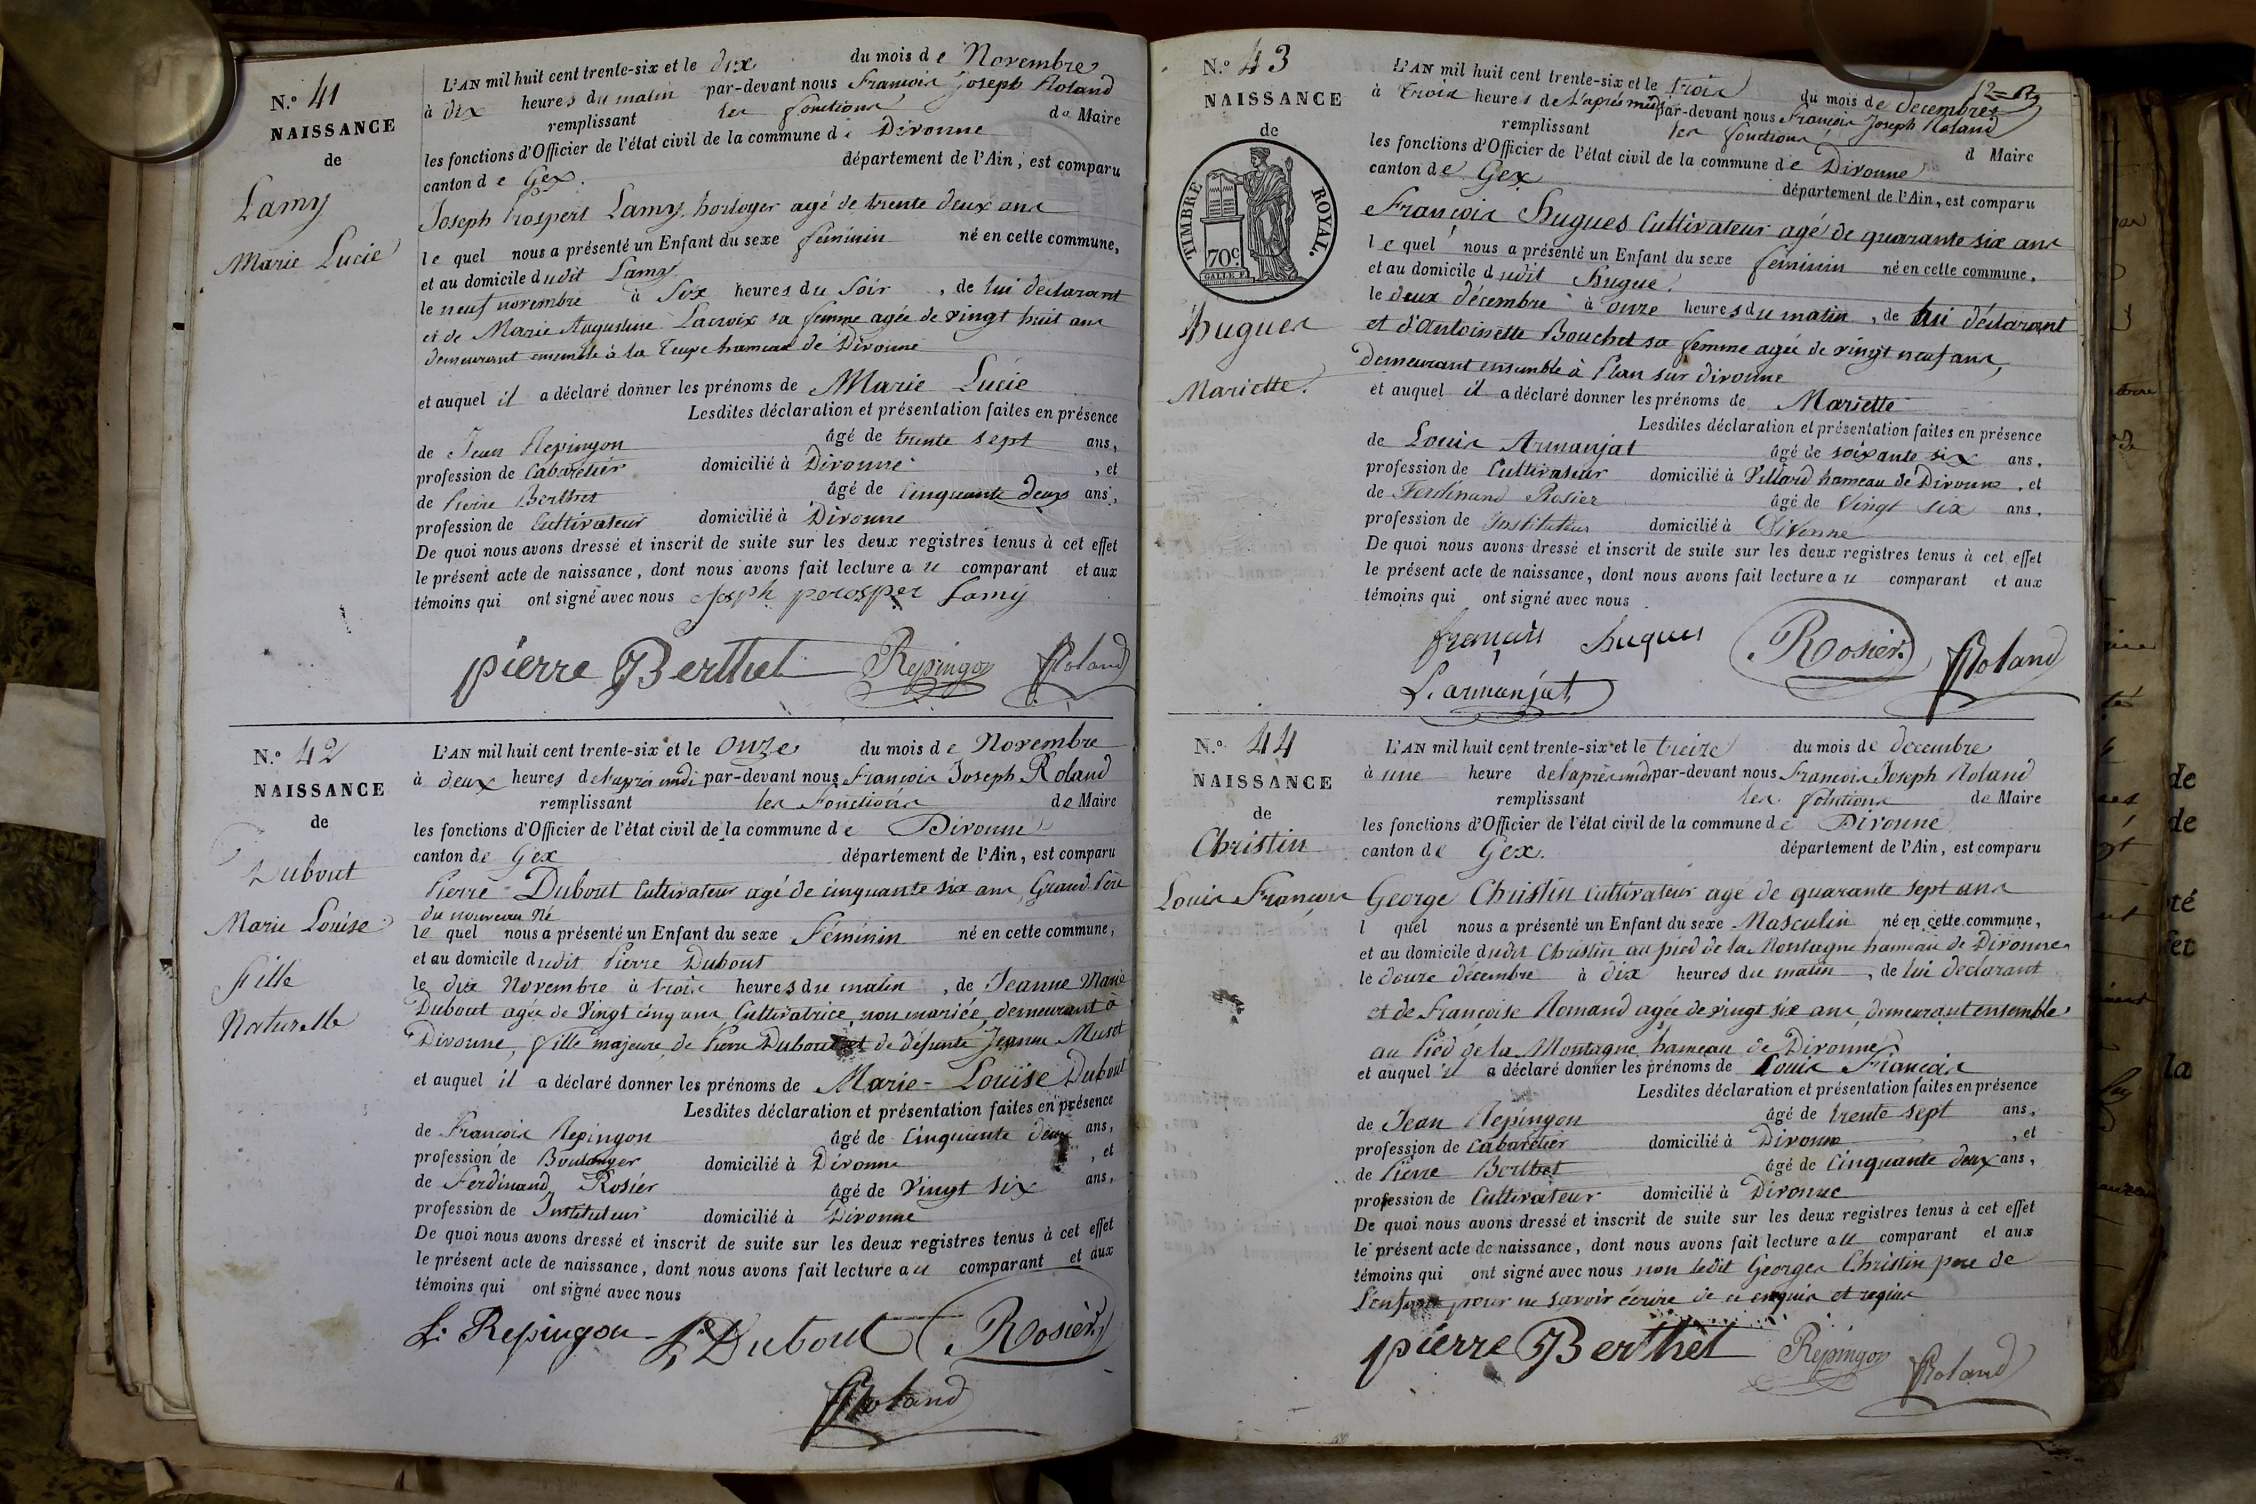 N.o 41
NAISSANCE
de
Lamy
Marie Lucie
L'AN mil huit cent trente-six et le dix du mois de Novembre
à dix heures du matin par-devant nous François Joseph Roland
remplissant les fonctions de Maire
les fonctions d'Officier de l'état civil de la commune de Divonne
canton de Gex. département de l'Ain, est comparu
Joseph Prospert Lamy, horloger agé de trente deux ans
le quel nous a présenté un Enfant du sexe féminin né en cette commune,
et au domicile dudit Lamy
le neuf novembre à Six heures du Soir, de lui déclarant
et de Marie Augustine Lacroix sa femme agée de vingt huit ans
demeurant ensemble à la hameau de Divonne
et auquel il a déclaré donner les prénoms de Marie Lucie
Lesdites déclaration et présentation faites en présence
de Jean Repingon âgé de trente sept ans,
profession de Cabaretier domicilié à Divonne, et
de Pierre Berthet âgé de Cinquante deux ans,
profession de Cultivateur domicilié à Divonne
De quoi nous avons dressé et inscrit de suite sur les deux registres tenus à cet effet
le présent acte de naissance, dont nous avons fait lecture au comparant et aux
témoins qui ont signé avec nous Joseph perosper Lamy
pierre Berthet Repingon Roland
N.o 42
NAISSANCE
de
Dubout
Marie Louise
Fille
Naturelle
L'AN mil huit cent trente-six et le onze du mois de Novembre
à deux heures de l'après midi par-devant nous François Joseph Roland
remplissant les Fonctions de Maire
les fonctions d'Officier de l'état civil de la commune de Divonne
canton de Gex département de l'Ain, est comparu
Pierre Dubout Cultivateur agé de cinquante six ans, Grand Père
du nouveau Né
le quel nous a présenté un Enfant du sexe Féminin né en cette commune,
et au domicile dudit Pierre Dubout
le dix Novembre à trois heures du matin, de Jeanne Marie
Dubout agée de Vingt cinq ans Cultivatrice, non mariée, demeurant à
Divonne, fille majeure, de Pierre Dubout et de défunte Jeanne Musot
et auquel il a déclaré donner les prénoms de Marie-Louise Dubout
Lesdites déclaration et présentation faites en présence
de François Repingon âgé de Cinquante deux ans,
profession de Boulanger domicilié à Divonne, et
de Ferdinand Rosier âgé de Vingt six ans,
profession de Instituteur domicilié à Divonne
De quoi nous avons dressé et inscrit de suite sur les deux registres tenus à cet effet
le présent acte de naissance, dont nous avons fait lecture au comparant et aux
témoins qui ont signé avec nous
Repingon Dubout Rosier
Roland
N.o 43
NAISSANCE
de
TIMBRE ROYAL.
70c.
Hugues
Mariette.
L'AN mil huit cent trente-six et le trois du mois de decembre
à trois heures de l'après midi par-devant nous François Joseph Roland
remplissant les fonctions d Maire
les fonctions d'Officier de l'état civil de la commune de Divonne
canton de Gex département de l'Ain, est comparu
François Hugues Cultivateur agé de quarante six ans
le quel nous a présenté un Enfant du sexe féminin né en cette commune,
et au domicile dudit Hugue.
le deux décembre à onze heures du matin, de lui déclarant
et d'Antoinette Bouchet sa femme agée de vingt neuf ans,
demeurant ensemble à Plan sur divonne
et auquel il a déclaré donner les prénoms de Mariette
Lesdites déclaration et présentation faites en présence
de Louis Armanjat âgé de soixante six ans,
profession de Cultivateur domicilié à Villard hameau de Divonne, et
de Ferdinand Rosier âgé de Vingt six ans,
profession de Instituteur domicilié à Divonne
De quoi nous avons dressé et inscrit de suite sur les deux registres tenus à cet effet
le présent acte de naissance, dont nous avons fait lecture au comparant et aux
témoins qui ont signé avec nous
français hugues Rosier Roland
L. armanjat
N.o 44
NAISSANCE
de
Christin
Louis François
L'AN mil huit cent trente-six et le treize du mois de decembre
à une heure de l'après midi par-devant nous François Joseph Roland
remplissant les fonctions de Maire
les fonctions d'Officier de l'état civil de la commune de Divonne
canton de Gex. département de l'Ain, est comparu
George Christin cultivateur agé de quarante sept ans
l quel nous a présenté un Enfant du sexe Masculin né en cette commune,
et au domicile dudit Christin au pied de la Montagne hameau de Divonne
le douze décembre à dix heures du matin, de lui declarant
et de Françoise Romand agée de vingt six ans, demeurant ensemble
au Pied de la Montagne, hameau de Divonne
et auquel il a déclaré donner les prénoms de Louis François
Lesdites déclaration et présentation faites en présence
de Jean Repingon âgé de trente sept ans,
profession de Cabaretier domicilié à Divonne, et
de Pierre Berthet âgé de Cinquante deux ans,
profession de Cultivateur domicilié à Divonne
De quoi nous avons dressé et inscrit de suite sur les deux registres tenus à cet effet
le présent acte de naissance, dont nous avons fait lecture au comparant et aux
témoins qui ont signé avec nous non ledit Georges Christin pere de
l'enfant pour ne savoir écrire de ce enquis et requis
pierre Berthet Repingon Roland